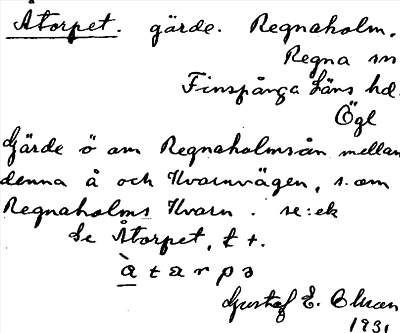 Åtorpet. gärde. Regnaholm.
Regna sn
Finspånga Läns hd.
Ögl
Gärde ö om Regnaholmsån mellan
denna å och Kvarnvägen, s. om
Regnaholms Kvarn. se: ek
Se Åtorpet, t +.
Gustaf E. Olsson
1931